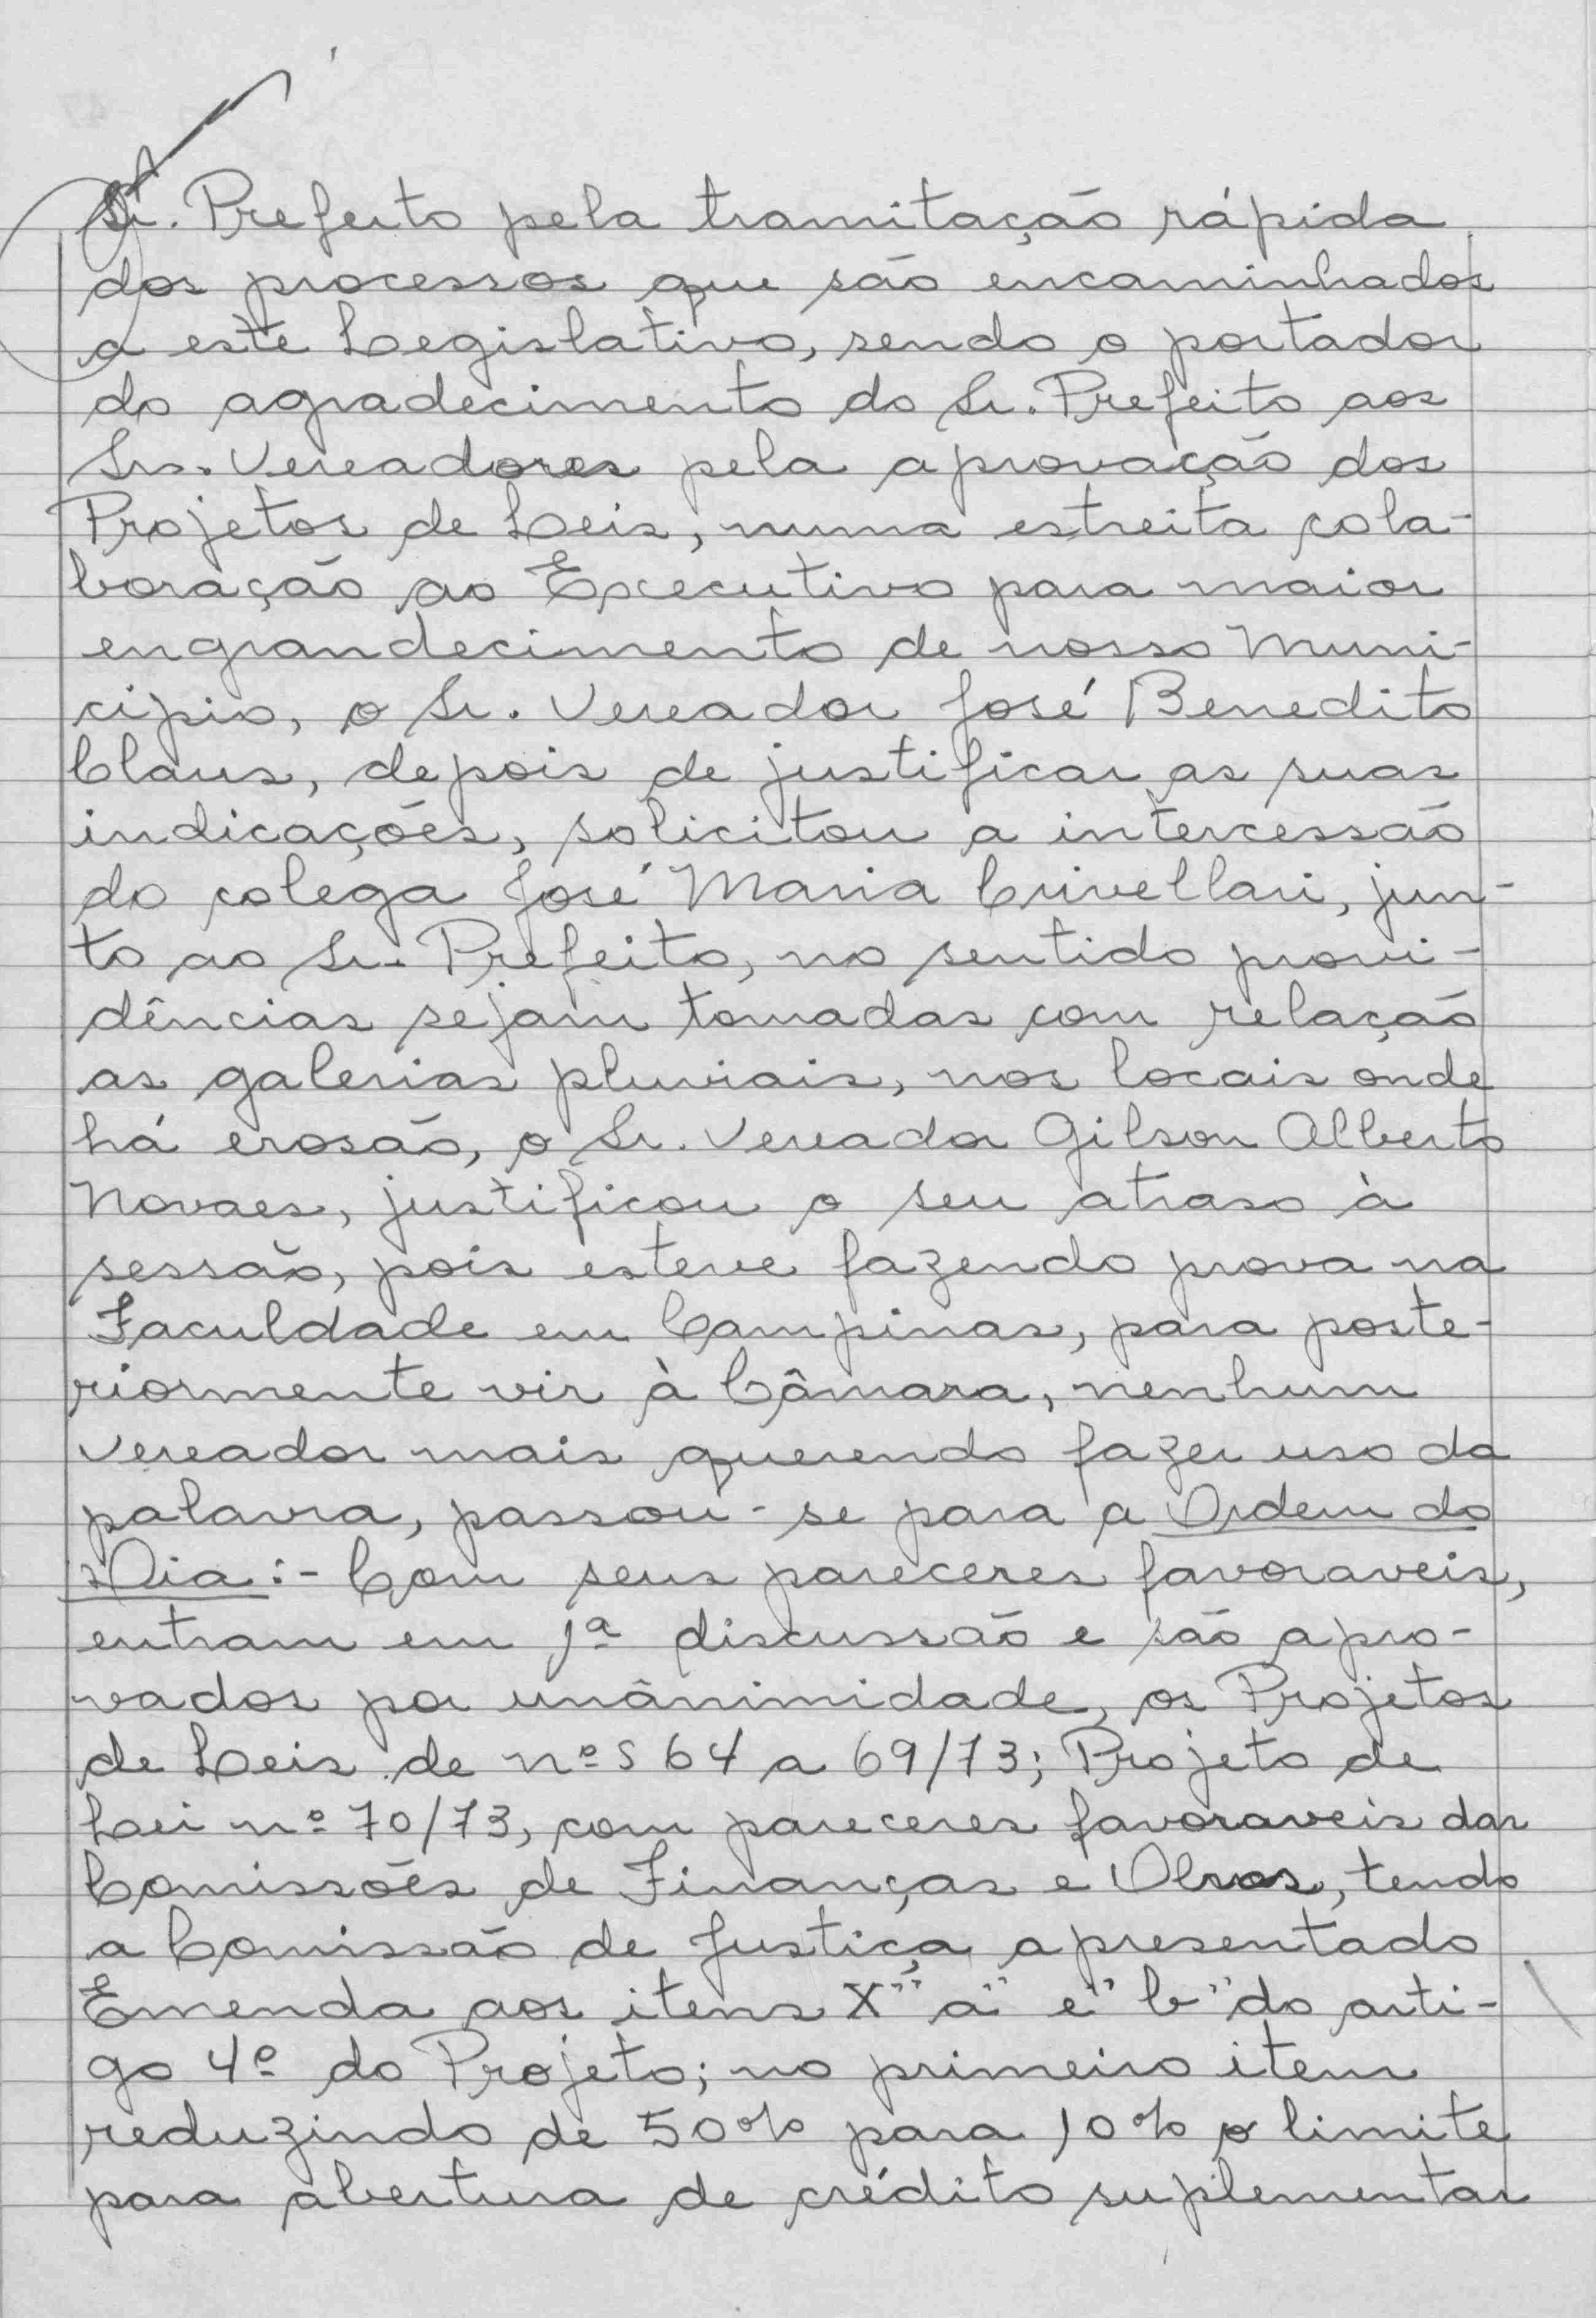 Sr. Prefeito pela tramitação rápida
dos processos que são encaminhados
a este Legislativo, sendo o portador
do agradecimento do Sr. Prefeito aos
Srs. Vereadores pela aprovação dos
Projetos de Leis, numa estreita cola-
boração ao Executivo para maior
engrandecimento de nosso Muni-
cipio, o Sr. Vereador José Benedito
Claus, depois de justificar as suas
indicações, solicitou a intercessão
do colega José Maria Crivellari, jun-
to ao Sr. Prefeito, no sentido provi-
dências sejam tomadas com relação
as galerias pluviais, nos locais onde
há erosão, o Sr. Vereador Gilson Alberto
Novaes, justificou o seu atraso à
sessão, pois esteve fazendo prova na
Faculdade em Campinas, para poste-
riormente vir à Câmara, nenhum
Vereador mais querendo fazer uso da
palavra, passou-se para a Ordem do
Dia:- Com seus pareceres favoraveis,
entram em 1ª discussão e são apro-
vados por unânimidade, os Projetos
de Leis de nºs 64 a 69/73; Projeto de
Lei nº 70/73, com pareceres favoraveis das
Comissões de Finanças e Obras, tendo
a Comissão de Justiça apresentado
Emenda aos itens X "a" e "b" do arti-
go 4º do Projeto; no primeiro item
reduzindo de 50% para 10% o limite
para abertura de crédito suplementar